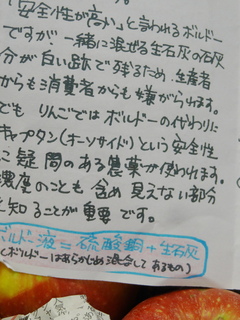 「安全性が高い」と言われるボルドー
ですが一緒に混ぜる生石灰の石灰
分が白い跡で残るため、生産者
からも消費者からも嫌がられます。
でも りんごではボルドーの代わりに
キャプタン(オーソサイド)という安全性
に疑問のある農薬が使われます。
濃度のことも含め 見えない部分
を知ることが重要です。
ボルドー液=硫酸銅+生石灰
(ボルドーはあらかじめ混合してあるもの)